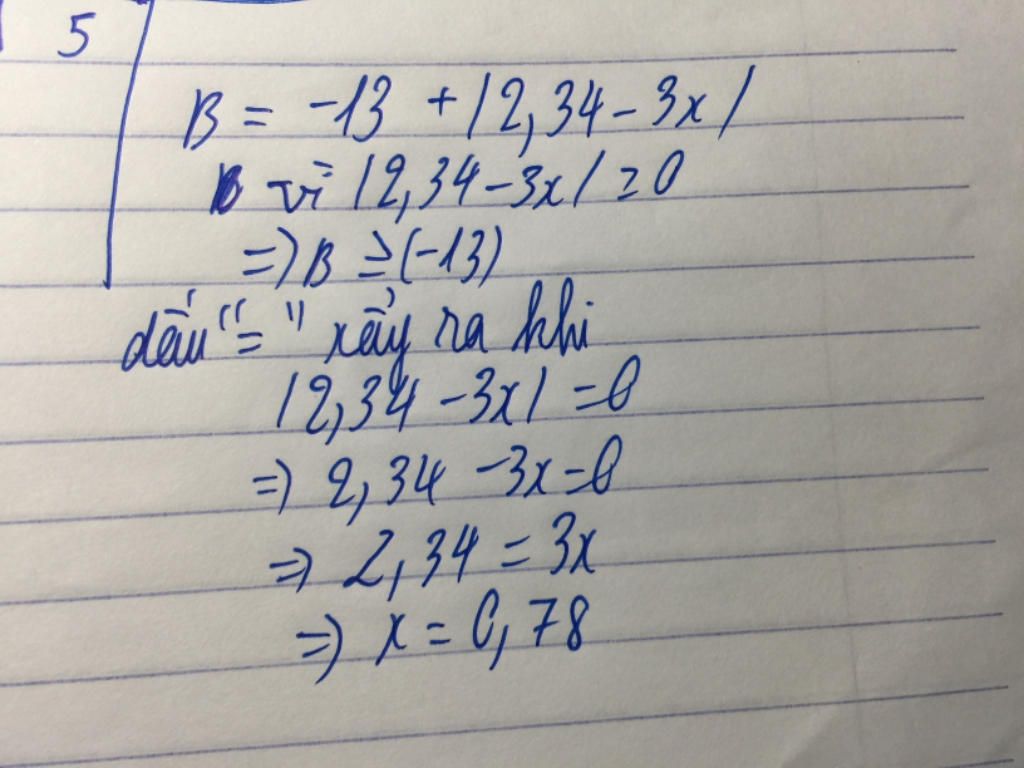 5
B = -13 + |2,34 - 3x|
vì |2,34 - 3x| ≥ 0
=> B ≥ (-13)
dấu "=" xảy ra khi
|2,34 - 3x| = 0
=> 2,34 - 3x = 0
=> 2,34 = 3x
=> x = 0,78